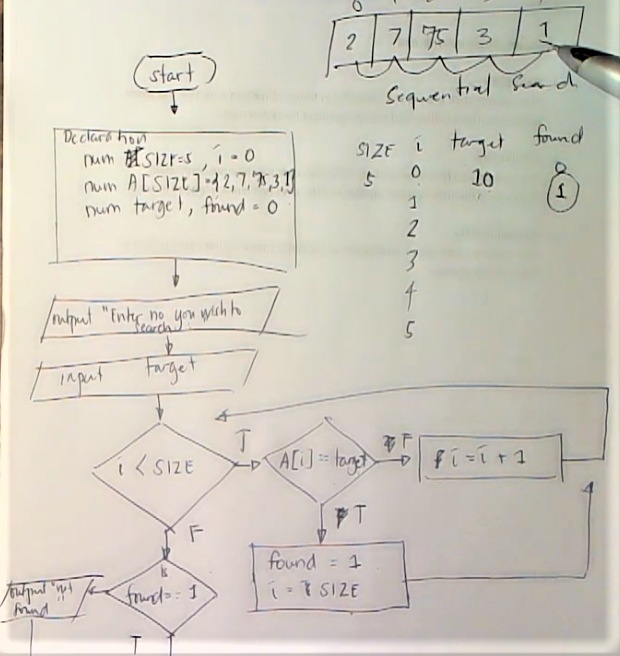 0
2 7 75 3 1
Sequential Search
start
Declaration
num SIZE=5, i = 0
num A[SIZE]={2,7,75,3,1}
num target, found = 0
SIZE i target found
5 0 10 0
1 1
2
3
4
5
output "Enter no you wish to
search
input target
i < SIZE
T
A[i] == target
F
i = i + 1
F
T
found = 1
i = SIZE
is
found == 1
output "not
found
T